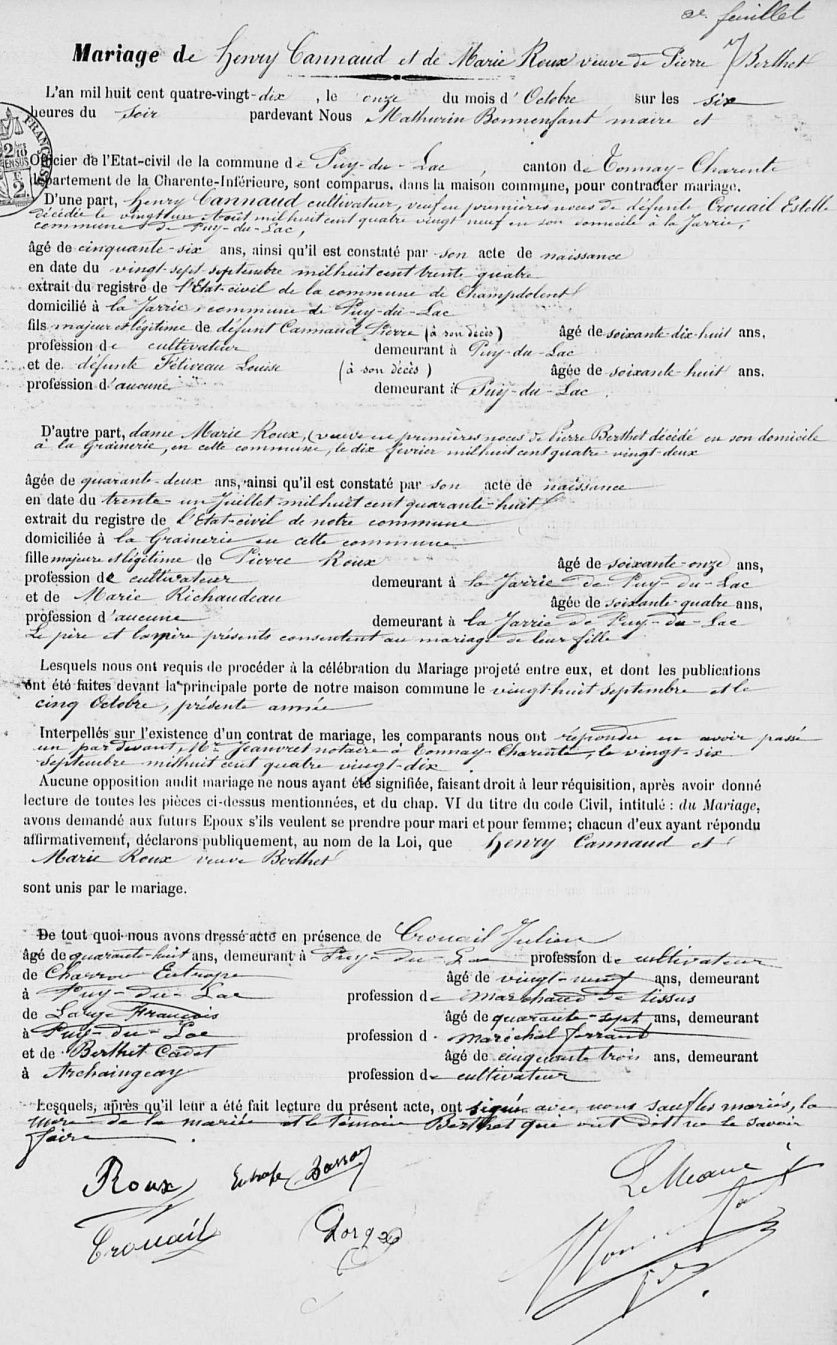 2e feuillet
Mariage de Henry Cannaud et de Marie Roux veuve de Pierre Berthet
L'an mil huit cent quatre-vingt-dix , le onze du mois d'Octobre sur les six
heures du soir pardevant Nous Mathurin Bonnenfant maire et
Officier de l'Etat-civil de la commune de Puy-du-Lac , canton de Tonnay-Charente
département de la Charente-Inférieure, sont comparus, dans la maison commune, pour contracter mariage.
D'une part, Henry Cannaud cultivateur, veuf en premières noces de défunte Crouail Estelle
décédée le vingt un Août mil huit cent quatre vingt neuf en son domicile à la Jarrie,
commune de Puy-du-Lac,
âgé de cinquante-six ans, ainsi qu'il est constaté par son acte de naissance
en date du vingt-sept septembre mil huit cent trente quatre
extrait du registre de l'Etat-civil de la commune de Champdolent
domicilié à la Jarrie, commune de Puy-du-Lac
fils majeur et légitime de défunt Cannaud Pierre (à son décès) âgé de soixante dix-huit ans,
profession de cultivateur demeurant à Puy-du-Lac
et de défunte Féliveau Louise (à son décès) âgée de soixante-huit ans,
profession d'aucune demeurant à Puy-du-Lac
D'autre part, dame Marie Roux, (veuve en premières noces de Pierre Berthet décédé en son domicile
à la Grainerie, en cette commune, le dix février mil huit cent quatre-vingt-deux
âgée de quarante-deux ans, ainsi qu'il est constaté par son acte de naissance
en date du trente-un Juillet mil huit cent quarante-huit
extrait du registre de l'Etat-civil de notre commune
domiciliée à la Grainerie en cette commune
fille majeure et légitime de Pierre Roux âgé de soixante-onze ans,
profession de cultivateur demeurant à la Jarrie de Puy-du-Lac
et de Marie Richaudeau âgée de soixante-quatre ans,
profession d'aucune demeurant à la Jarrie de Puy-du-Lac
Le père et la mère présents consentent au mariage de leur fille
Lesquels nous ont requis de procéder à la célébration du Mariage projeté entre eux, et dont les publications
ont été faites devant la principale porte de notre maison commune le vingt-huit septembre et le
cinq Octobre, présente année
Interpellés sur l'existence d'un contrat de mariage, les comparants nous ont répondu en avoir passé
un par devant Me Jeauvret notaire à Tonnay-Charente, le vingt-six
septembre mil huit cent quatre vingt-dix
Aucune opposition audit mariage ne nous ayant été signifiée, faisant droit à leur réquisition, après avoir donné
lecture de toutes les pièces ci-dessus mentionnées, et du chap. VI du titre du code Civil, intitulé : du Mariage,
avons demandé aux futurs Epoux s'ils veulent se prendre pour mari et pour femme; chacun d'eux ayant répondu
affirmativement, déclarons publiquement, au nom de la Loi, que Henry Cannaud et
Marie Roux veuve Berthet
sont unis par le mariage.
De tout quoi nous avons dressé acte en présence de Crouail Julien
âgé de quarante-huit ans, demeurant à Puy-du-Lac profession de cultivateur
de Charron Eutrope âgé de vingt-neuf ans, demeurant
à Puy-du-Lac profession de marchand de tissus
de François âgé de quarante-sept ans, demeurant
à Puy-du-Lac profession d. maréchal ferrant
et de Berthet Cadet âgé de cinquante trois ans, demeurant
à Archaingeay profession de cultivateur
Lesquels, après qu'il leur a été fait lecture du présent acte, ont signé avec nous sauf les mariés, la
mère de la mariée et le témoin Berthet que ont dit ne le savoir
faire
Roux
Le Maire
Crouail